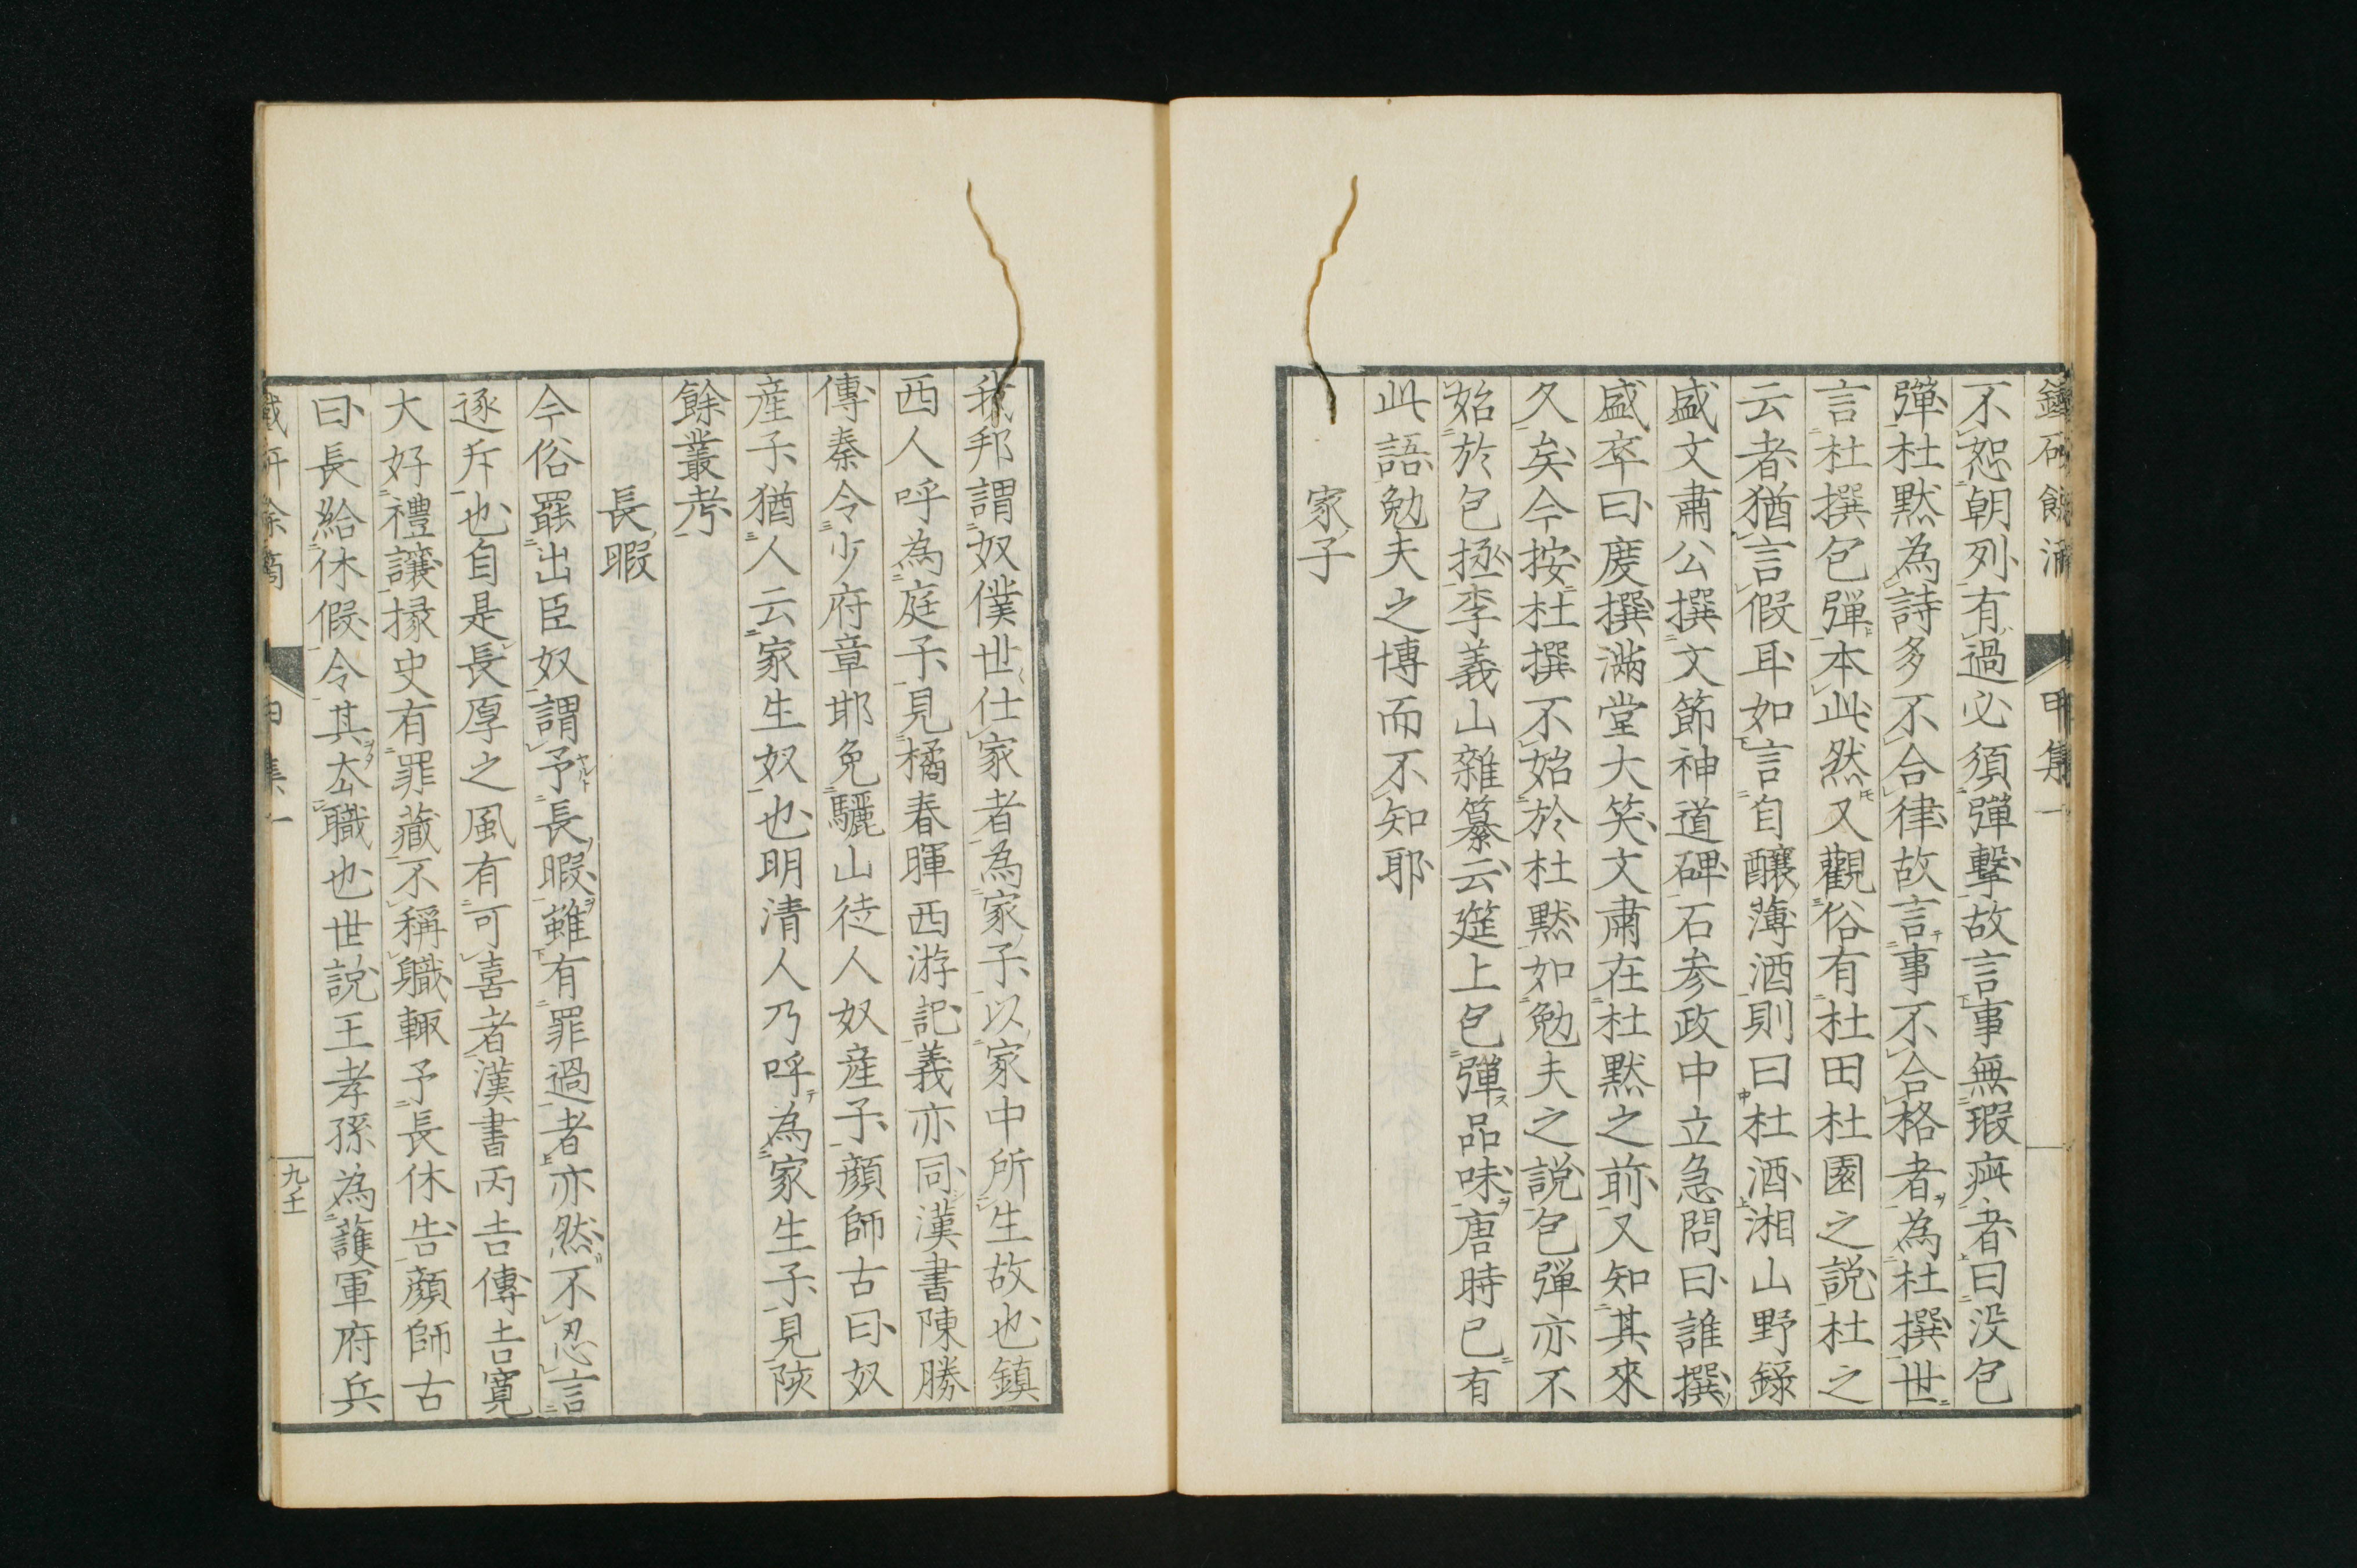 不恕朝列有過必須彈擊故言事無瑕疵者曰没包
彈杜默為詩多不合律故言事不合格者為杜撰世
言杜撰包彈本此然又觀俗有杜田杜園之説杜之
云者猶言假耳如言自釀薄酒則曰杜酒湘山野録
盛文肅公撰文節神道碑石参政中立急問曰誰撰
盛卒曰度撰滿堂大笑文肅在杜默之前又知其來
久矣今按杜撰不始於杜默如勉夫之説包彈亦不
始於包拯李義山雜纂云筵上包彈品味唐時已有
此語勉夫之博而不知耶
家子
我邦謂奴僕世仕家者為家子以家中所生故也鎮
西人呼為庭子見橘春暉西游記義亦同漢書陳勝
傳秦令少府章邯免驪山徒人奴産子顔師古曰奴
産子猶人云家生奴也明清人乃呼為家生子見陔
餘叢考
長暇
今俗罷出臣奴謂予長暇雖有罪過者亦然不忍言
逐斥也自是長厚之風有可喜者漢書丙吉傳吉寛
大好禮讓掾史有罪藏不稱職輙予長休告顔師古
曰長給休假令其去職也世説王孝孫為護軍府兵
餘 集一
九十